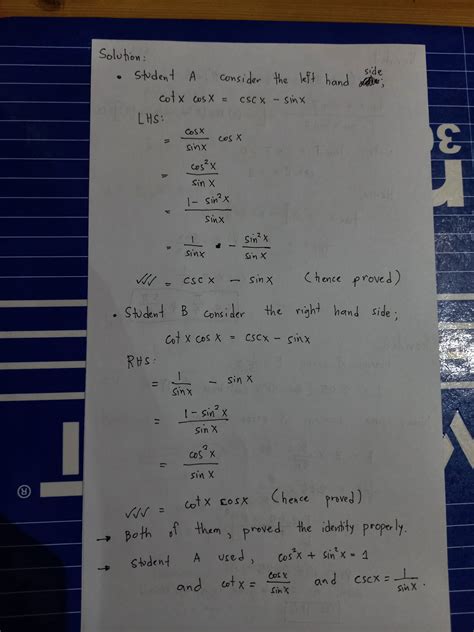 Solution:
• Student A consider the left hand side;
cotx cosx = cscx - sinx
LHS:
= cosx/sinx cosx
= cos²x/sinx
= 1 - sin²x/sinx
= 1/sinx - sin²x/sinx
= cscx - sinx (hence proved)
• Student B consider the right hand side;
cotx cosx = cscx - sinx
RHS:
= 1/sinx - sinx
= 1 - sin²x/sinx
= cos²x/sinx
= cotx cosx (hence proved)
→ Both of them, proved the identity properly.
→ Student A used, cos²x + sin²x = 1
and cotx = cosx/sinx and cscx = 1/sinx.